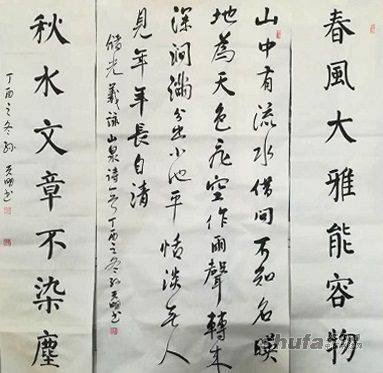 春風大雅能容物
山中有流水借問不知名暎
地為天色飛空作雨聲轉来
深澗滿分出小池平恬淡無人
見年年長自清
儲光羲詠山泉诗一首丁酉之冬
秋水文章不染塵
丁酉之冬